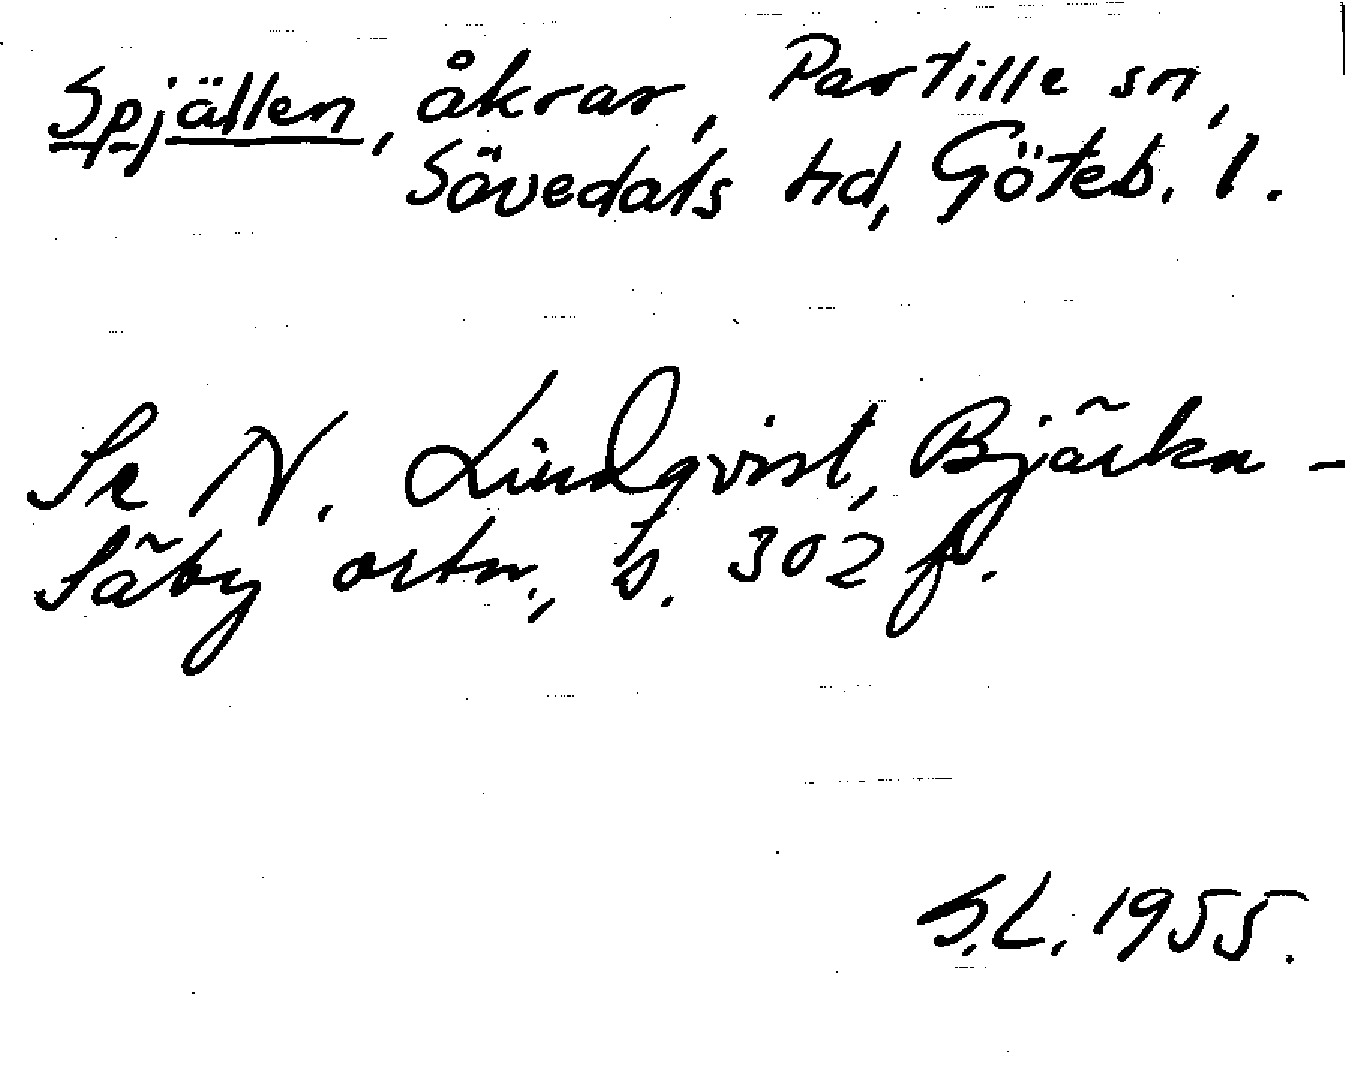 Spjällen, åkrar, Partille sn,
Sävedals hd, Göteb. l.
Se N. Lindqvist, Bjärka-
Säby ortn., s. 302 f.
S.L. 1955.